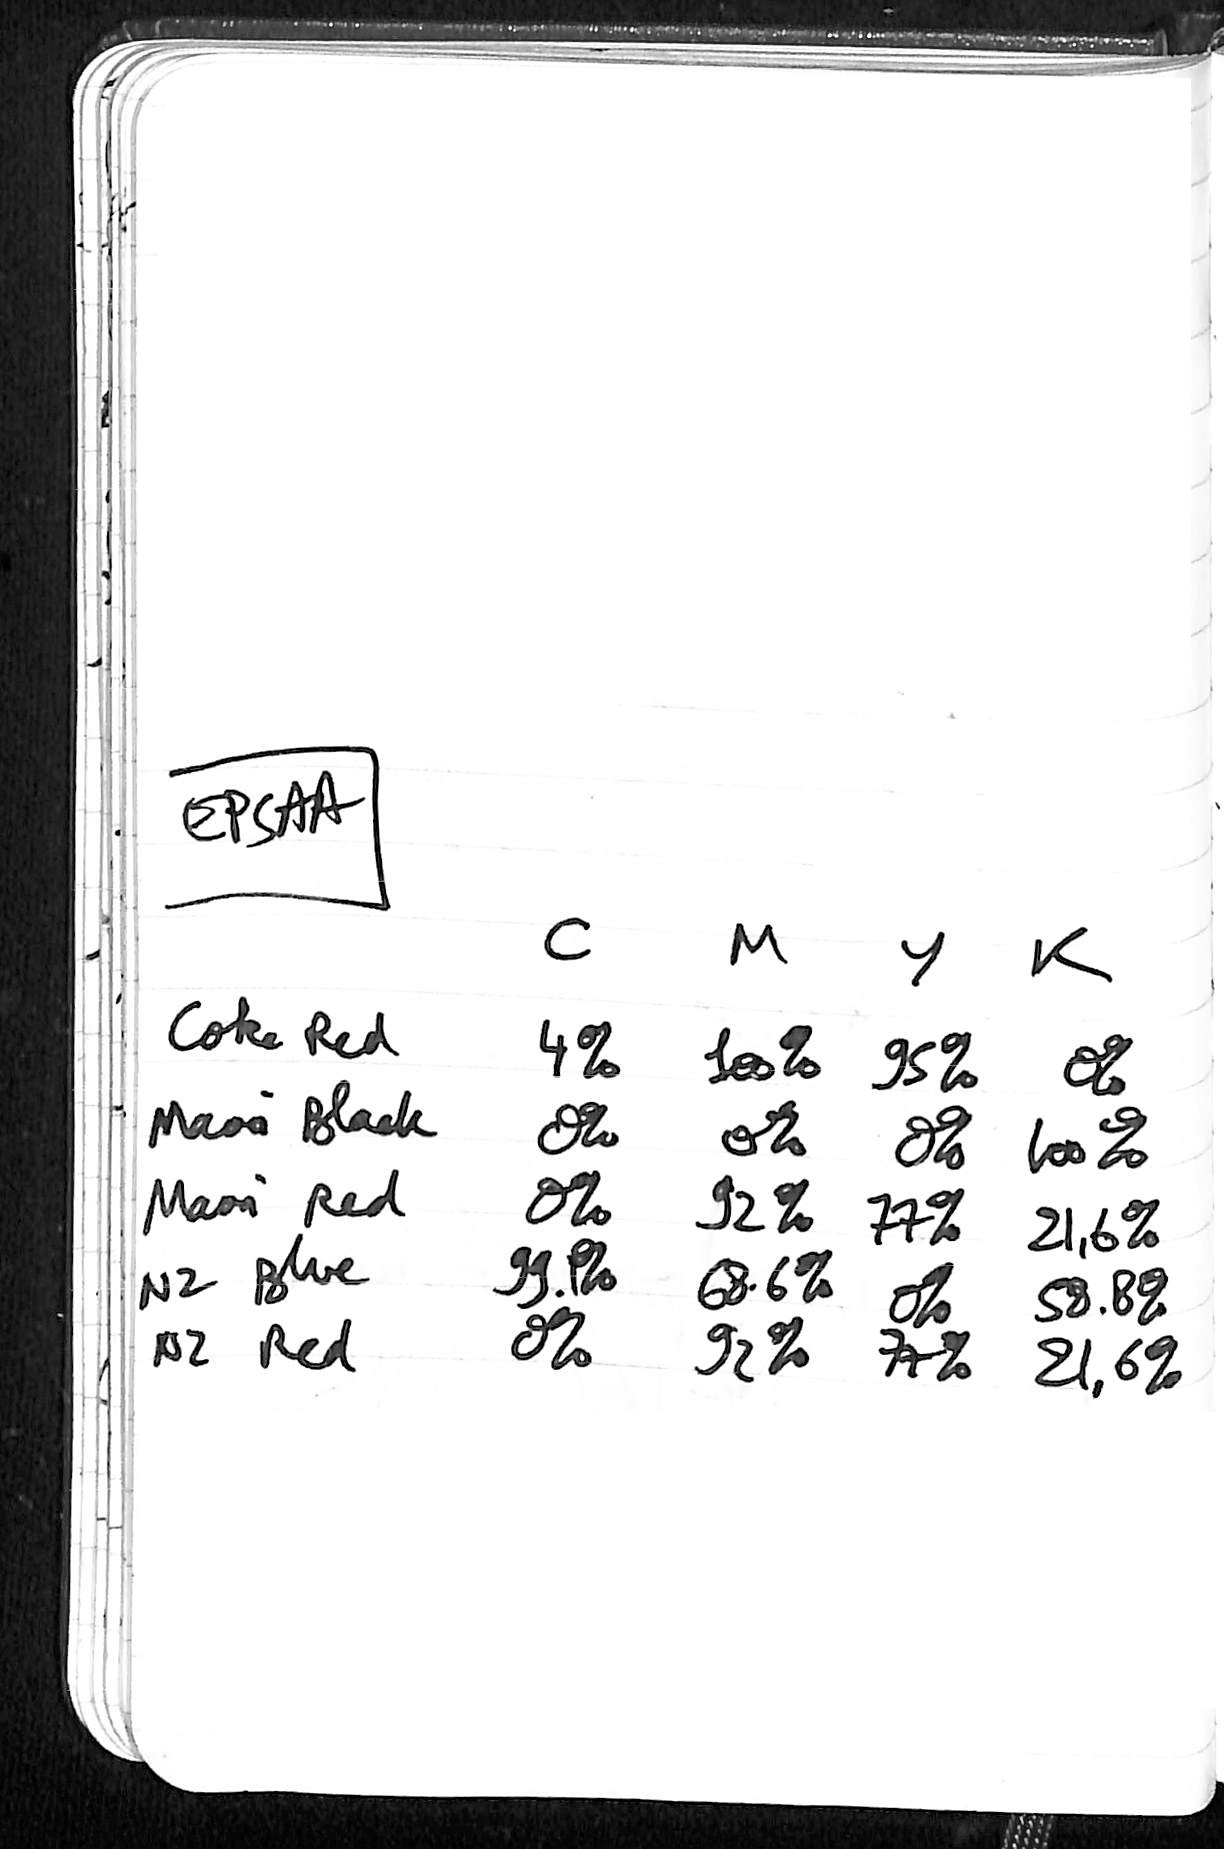 EPSAA
C M Y K
Coke Red 4% 100% 95% 0%
Maori Black 0% 0% 0% 100%
Maori Red 0% 92% 77% 21,6%
NZ Blue 99.1% 68.6% 0% 58.8%
NZ Red 0% 92% 77% 21,6%